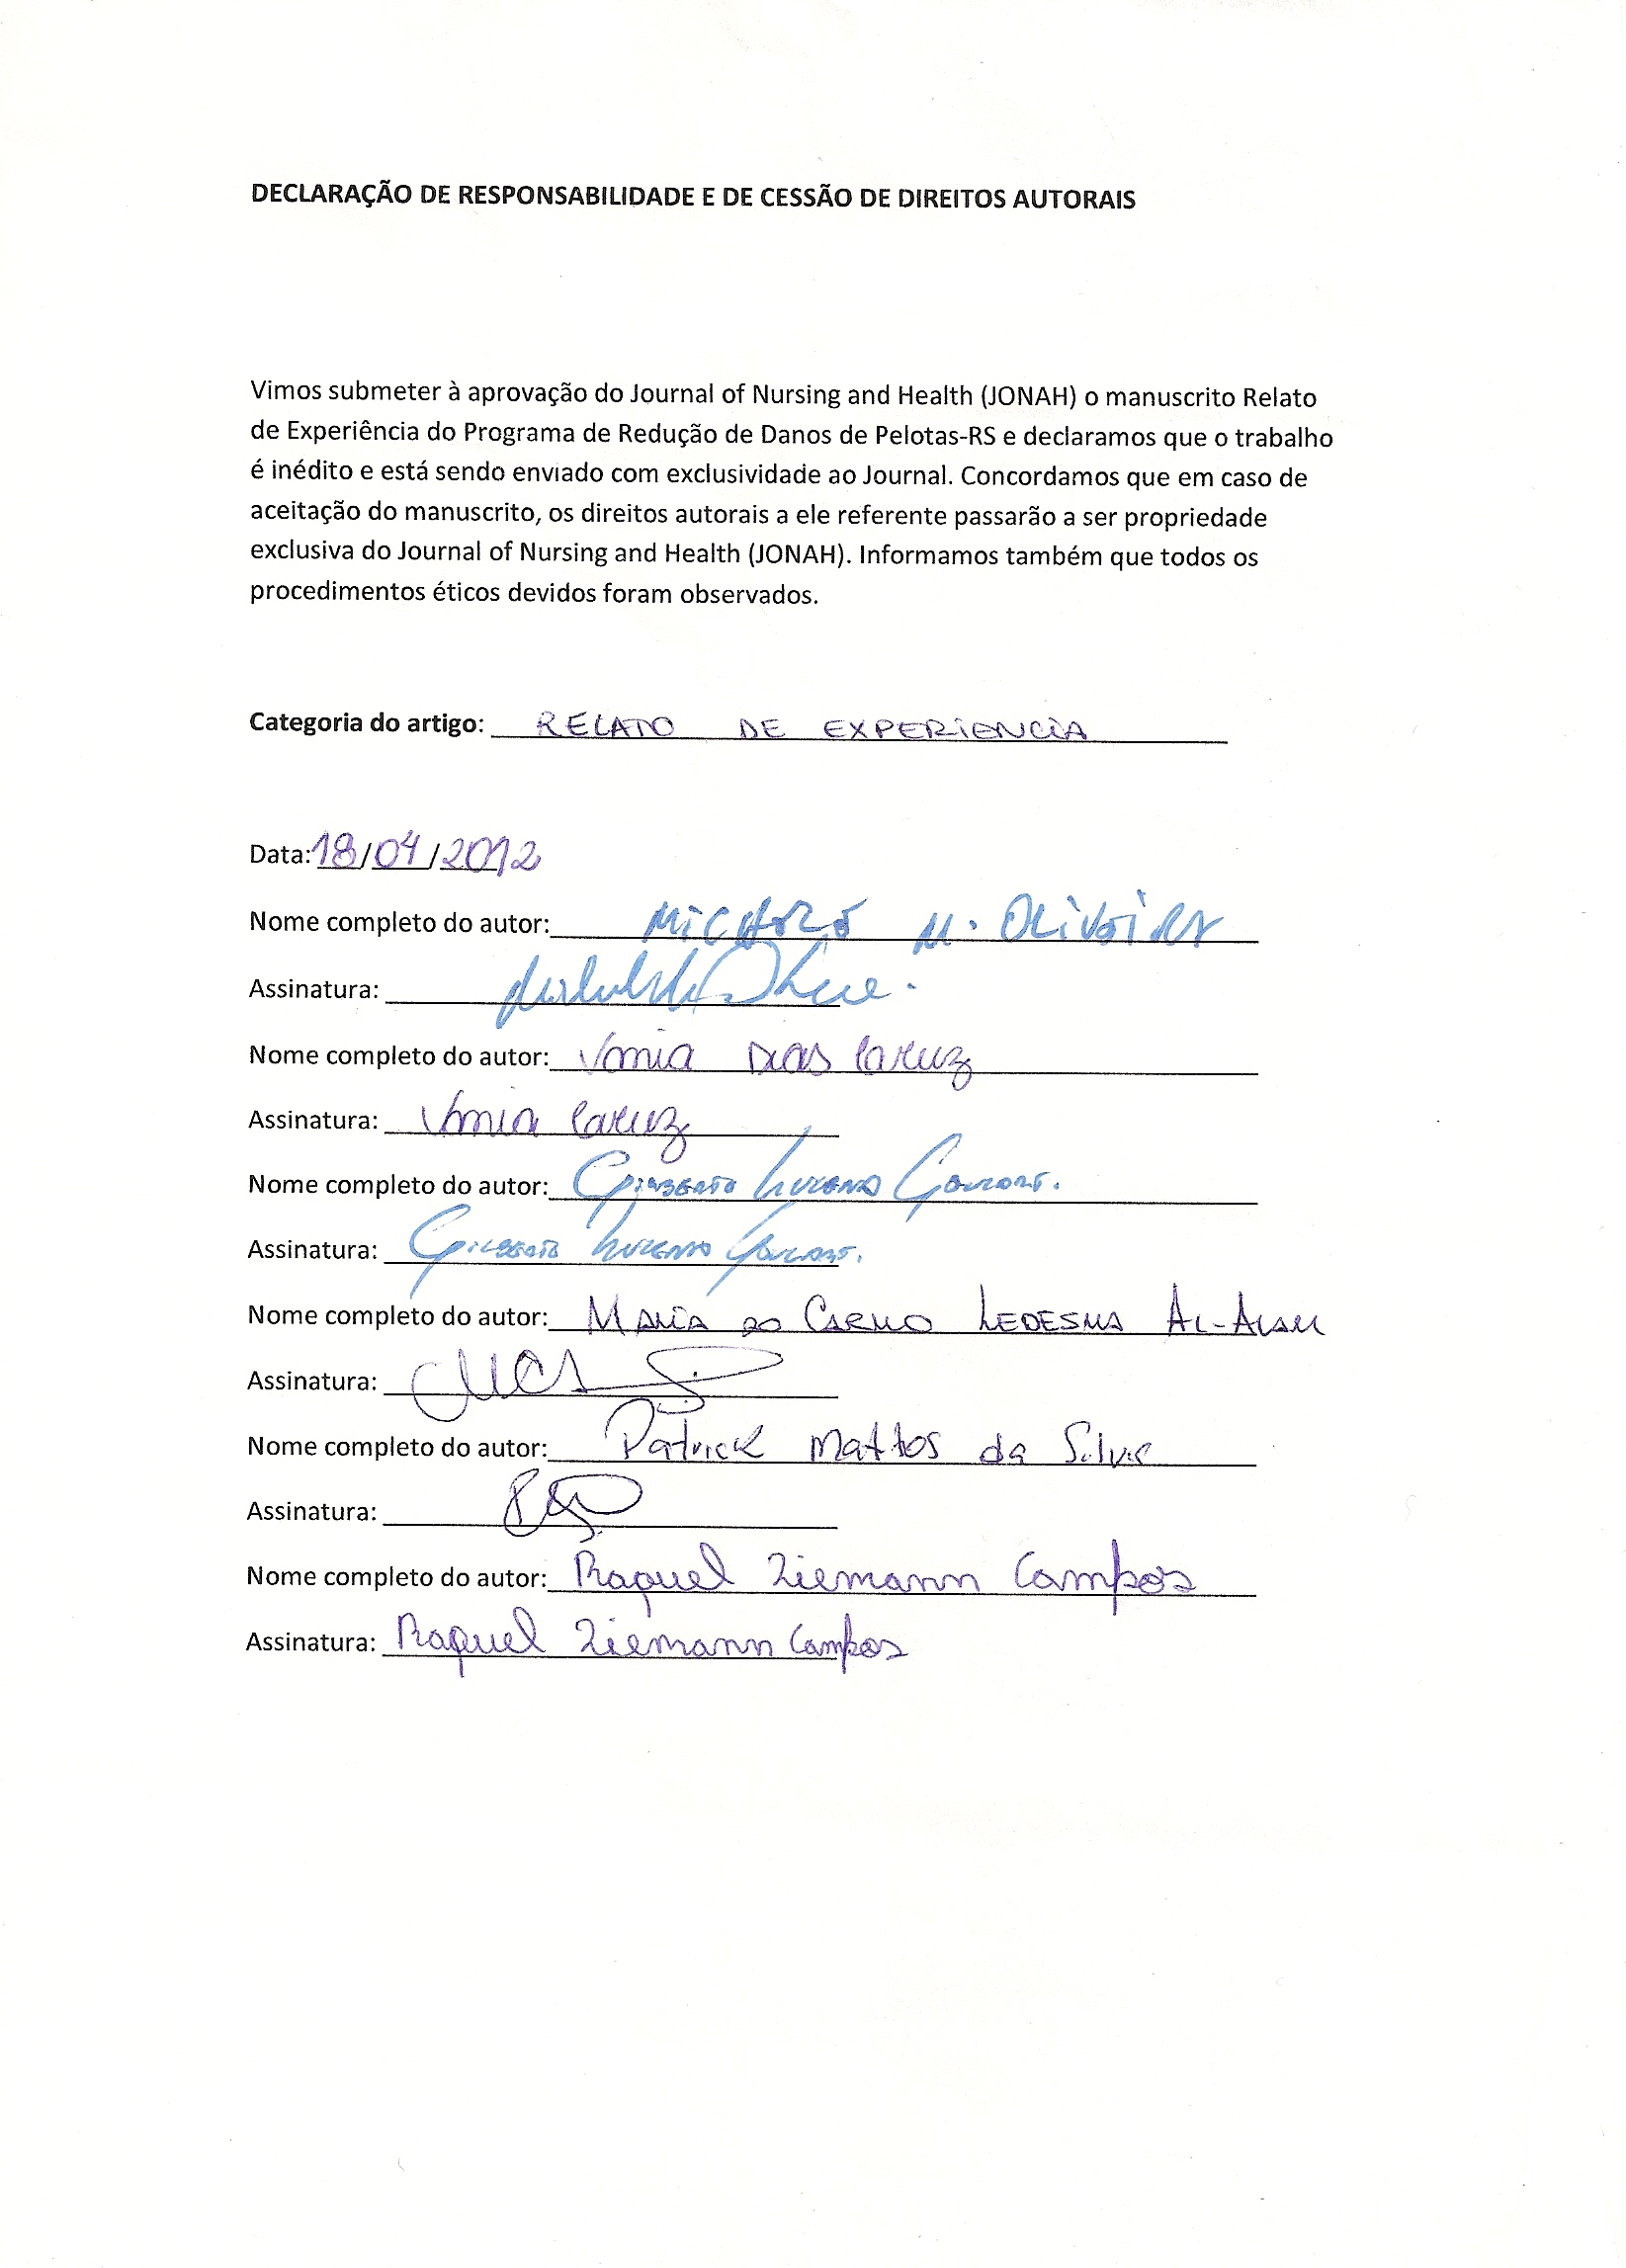 DECLARAÇÃO DE RESPONSABILIDADE E DE CESSÃO DE DIREITOS AUTORAIS
Vimos submeter à aprovação do Journal of Nursing and Health (JONAH) o manuscrito Relato
de Experiência do Programa de Redução de Danos de Pelotas-RS e declaramos que o trabalho
é inédito e está sendo enviado com exclusividade ao Journal. Concordamos que em caso de
aceitação do manuscrito, os direitos autorais a ele referente passarão a ser propriedade
exclusiva do Journal of Nursing and Health (JONAH). Informamos também que todos os
procedimentos éticos devidos foram observados.
Categoria do artigo: RELATO DE EXPERIENCIA
Data: 18/04/2012
Nome completo do autor: M. Oliveira
Assinatura:
Nome completo do autor: Vania Dias
Assinatura: Vania
Nome completo do autor: Gilberto Goulart.
Assinatura: Gilberto Goulart.
Nome completo do autor: MARIA DO CARMO LEDESMA AL-ALAM
Assinatura:
Nome completo do autor: Patrick Mattos da Silva
Assinatura:
Nome completo do autor: Raquel Ziemann Campos
Assinatura: Raquel Ziemann Campos